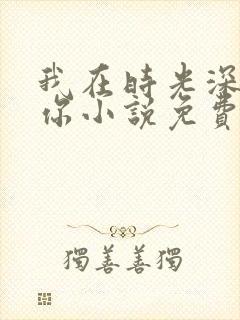 我在時光深
你小說免費
獨善善獨